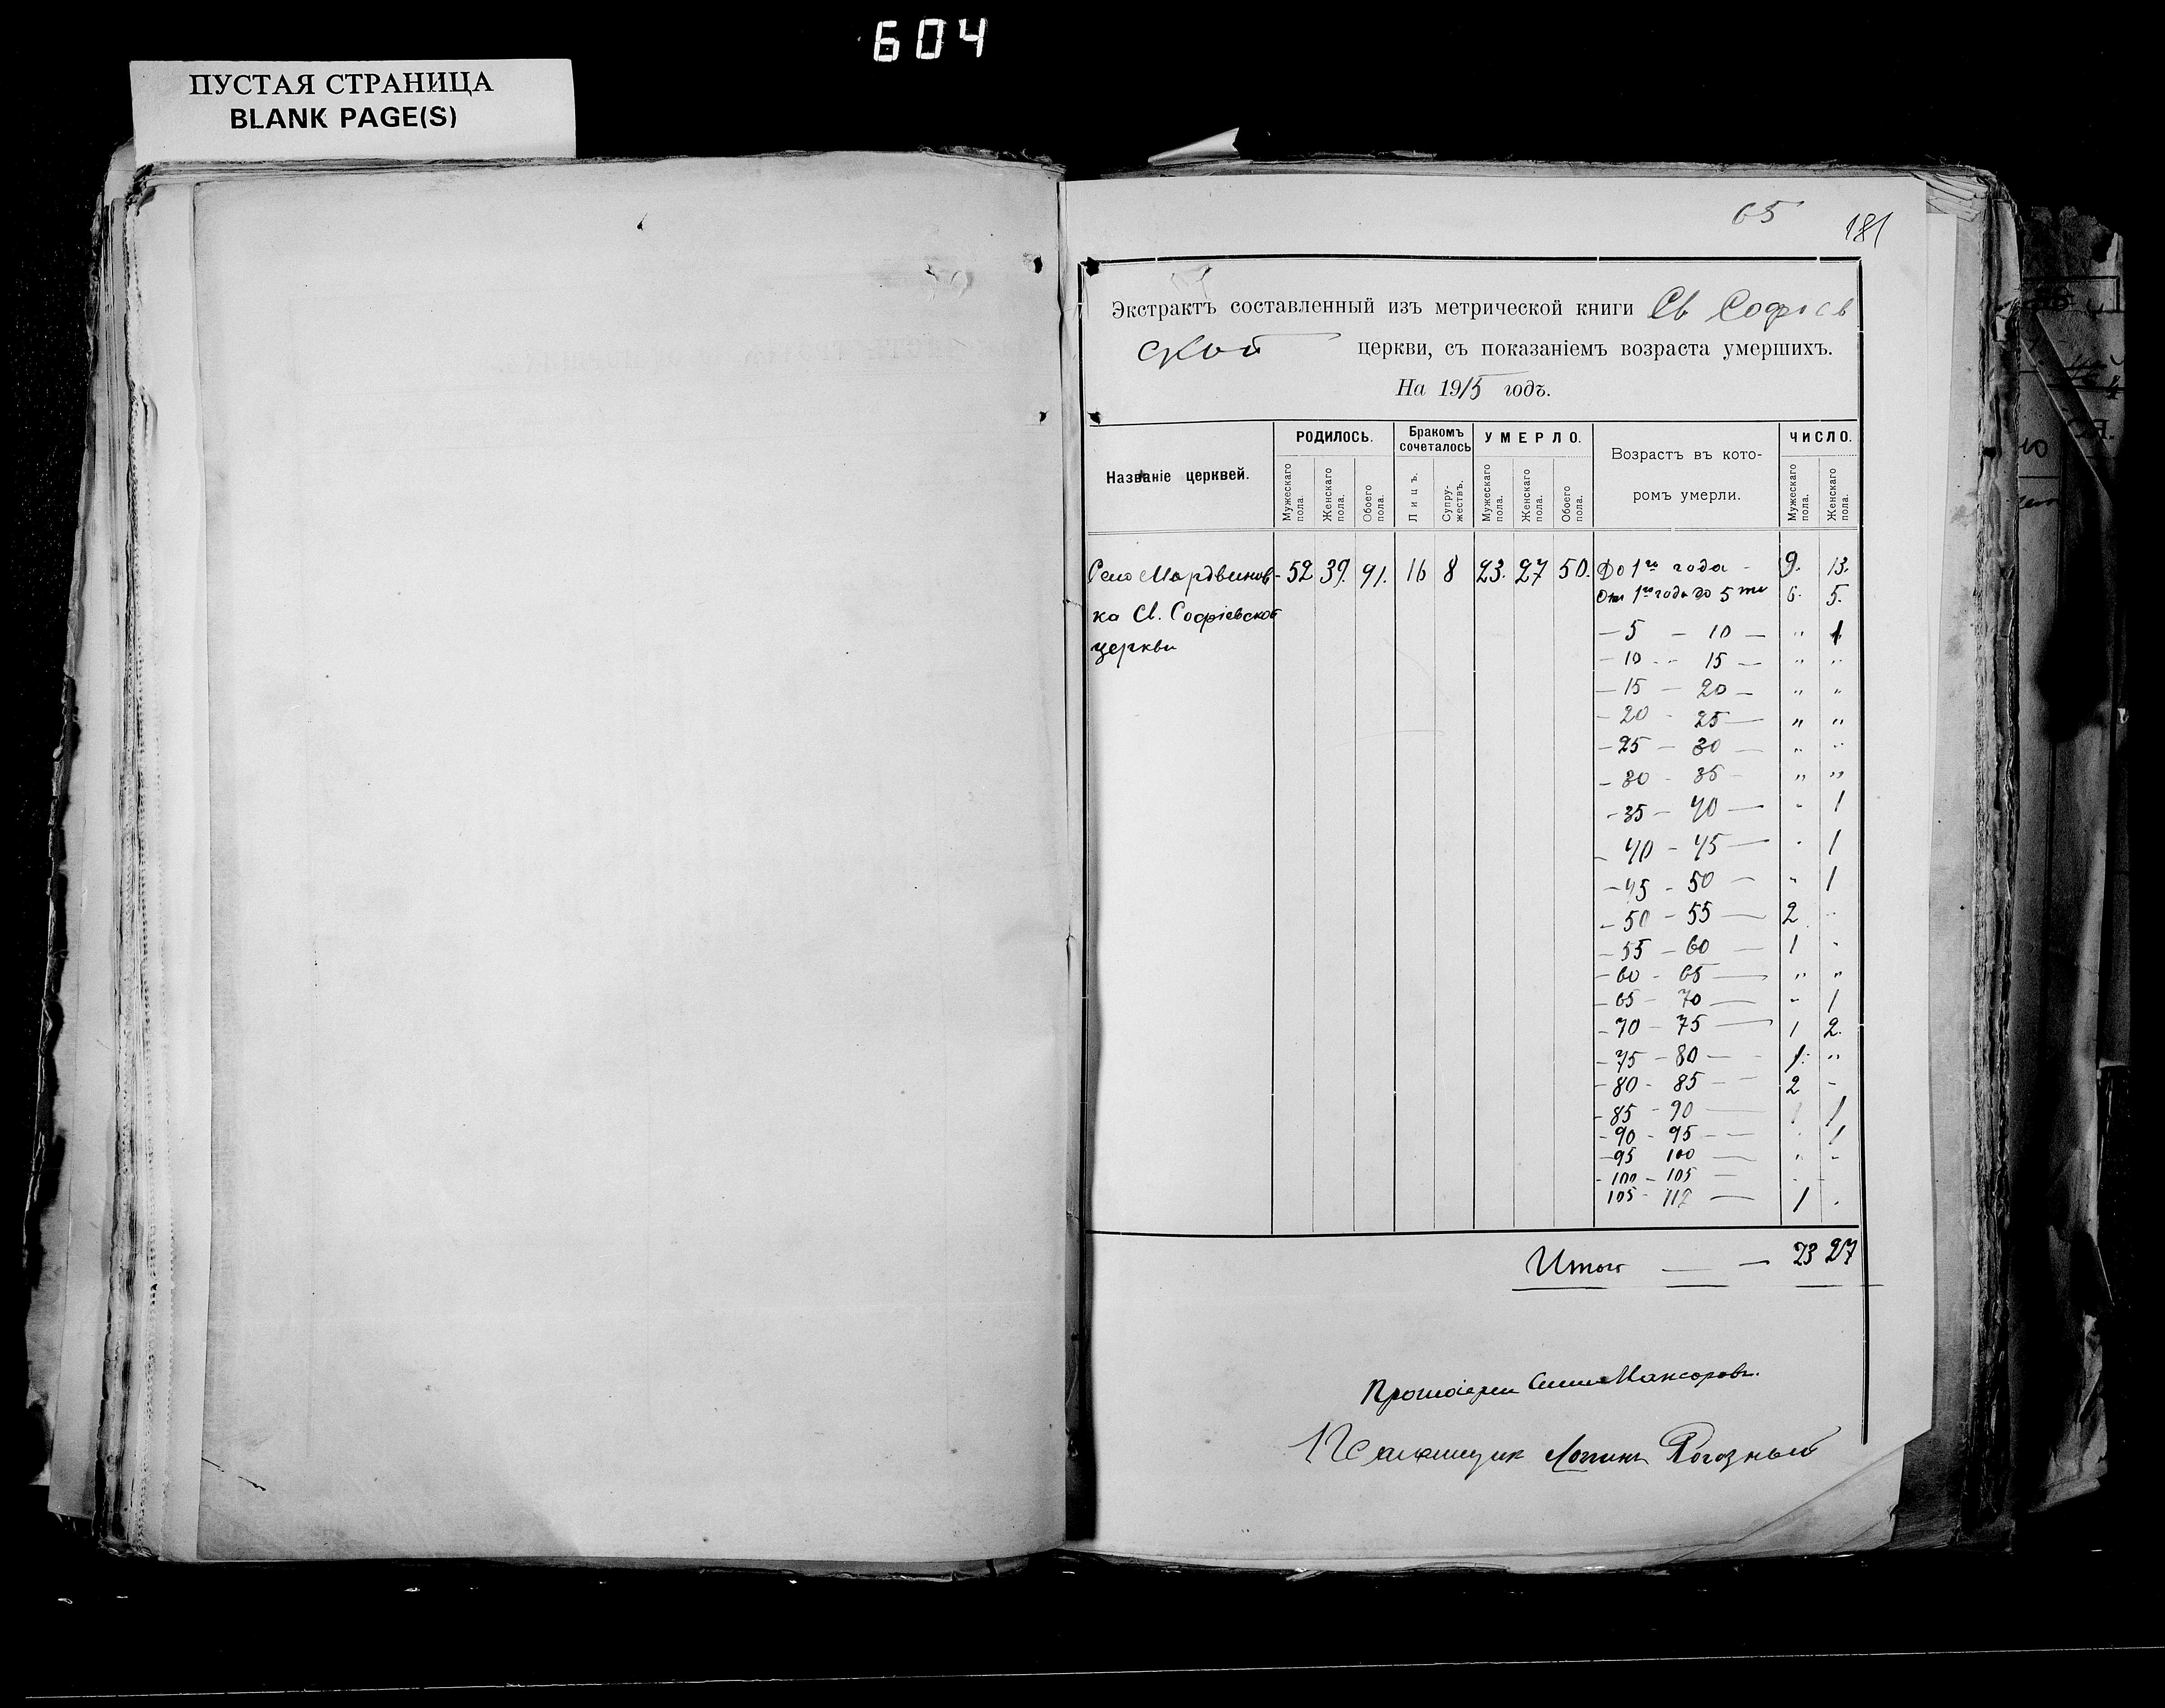 604
ПУСТАЯ СТРАНИЦА
BLANK PAGE(S)
65
181
Экстрактъ составленный изъ метрической книги Св Софіев
ской церкви, съ показаніемъ возраста умершихъ.
На 1915 годъ.
Названіе церквей. РОДИЛОСЬ. Бракомъ сочеталось УМЕРЛО. Возрастъ въ кото-ромъ умерли. ЧИСЛО.
Мужескаго пола. Женскаго пола. Обоего пола. Лицъ. Супружествъ. Мужескаго пола. Женскаго пола. Обоего пола. Мужескаго пола. Женскаго пола.
Село Мордвинов- 52 39. 91. 16 8 23. 27 50. До 1го года - 9. 13.
ка Св. Софіевской
церкви
От 1го года до 5ти 6. 5.
— 5 — 10 — " 1
— 10 - - 15 — " "
— 15 — 20 — " "
— 20 - 25 — " "
— 25 — 30 — " "
— 30 - 35 — " "
— 35 — 40 — " 1
— 40 — 45 — " 1
— 45 - 50 — " 1
— 50 — 55 — 2 "
— 55 — 60 — 1 "
— 60 - 65 — " "
— 65 — 70 — " 1
— 70 — 75 — 1 2.
— 75 — 80 — 1. "
— 80 - 85 — 2 -
— 85 - 90 — 1 1
— 90 - 95 — " 1
— 95 100 — " "
- 100 — 105 — - -
105 - 112 — 1 .
Итого — — 23 27
Протоіерей
Псаломщик Рогозный